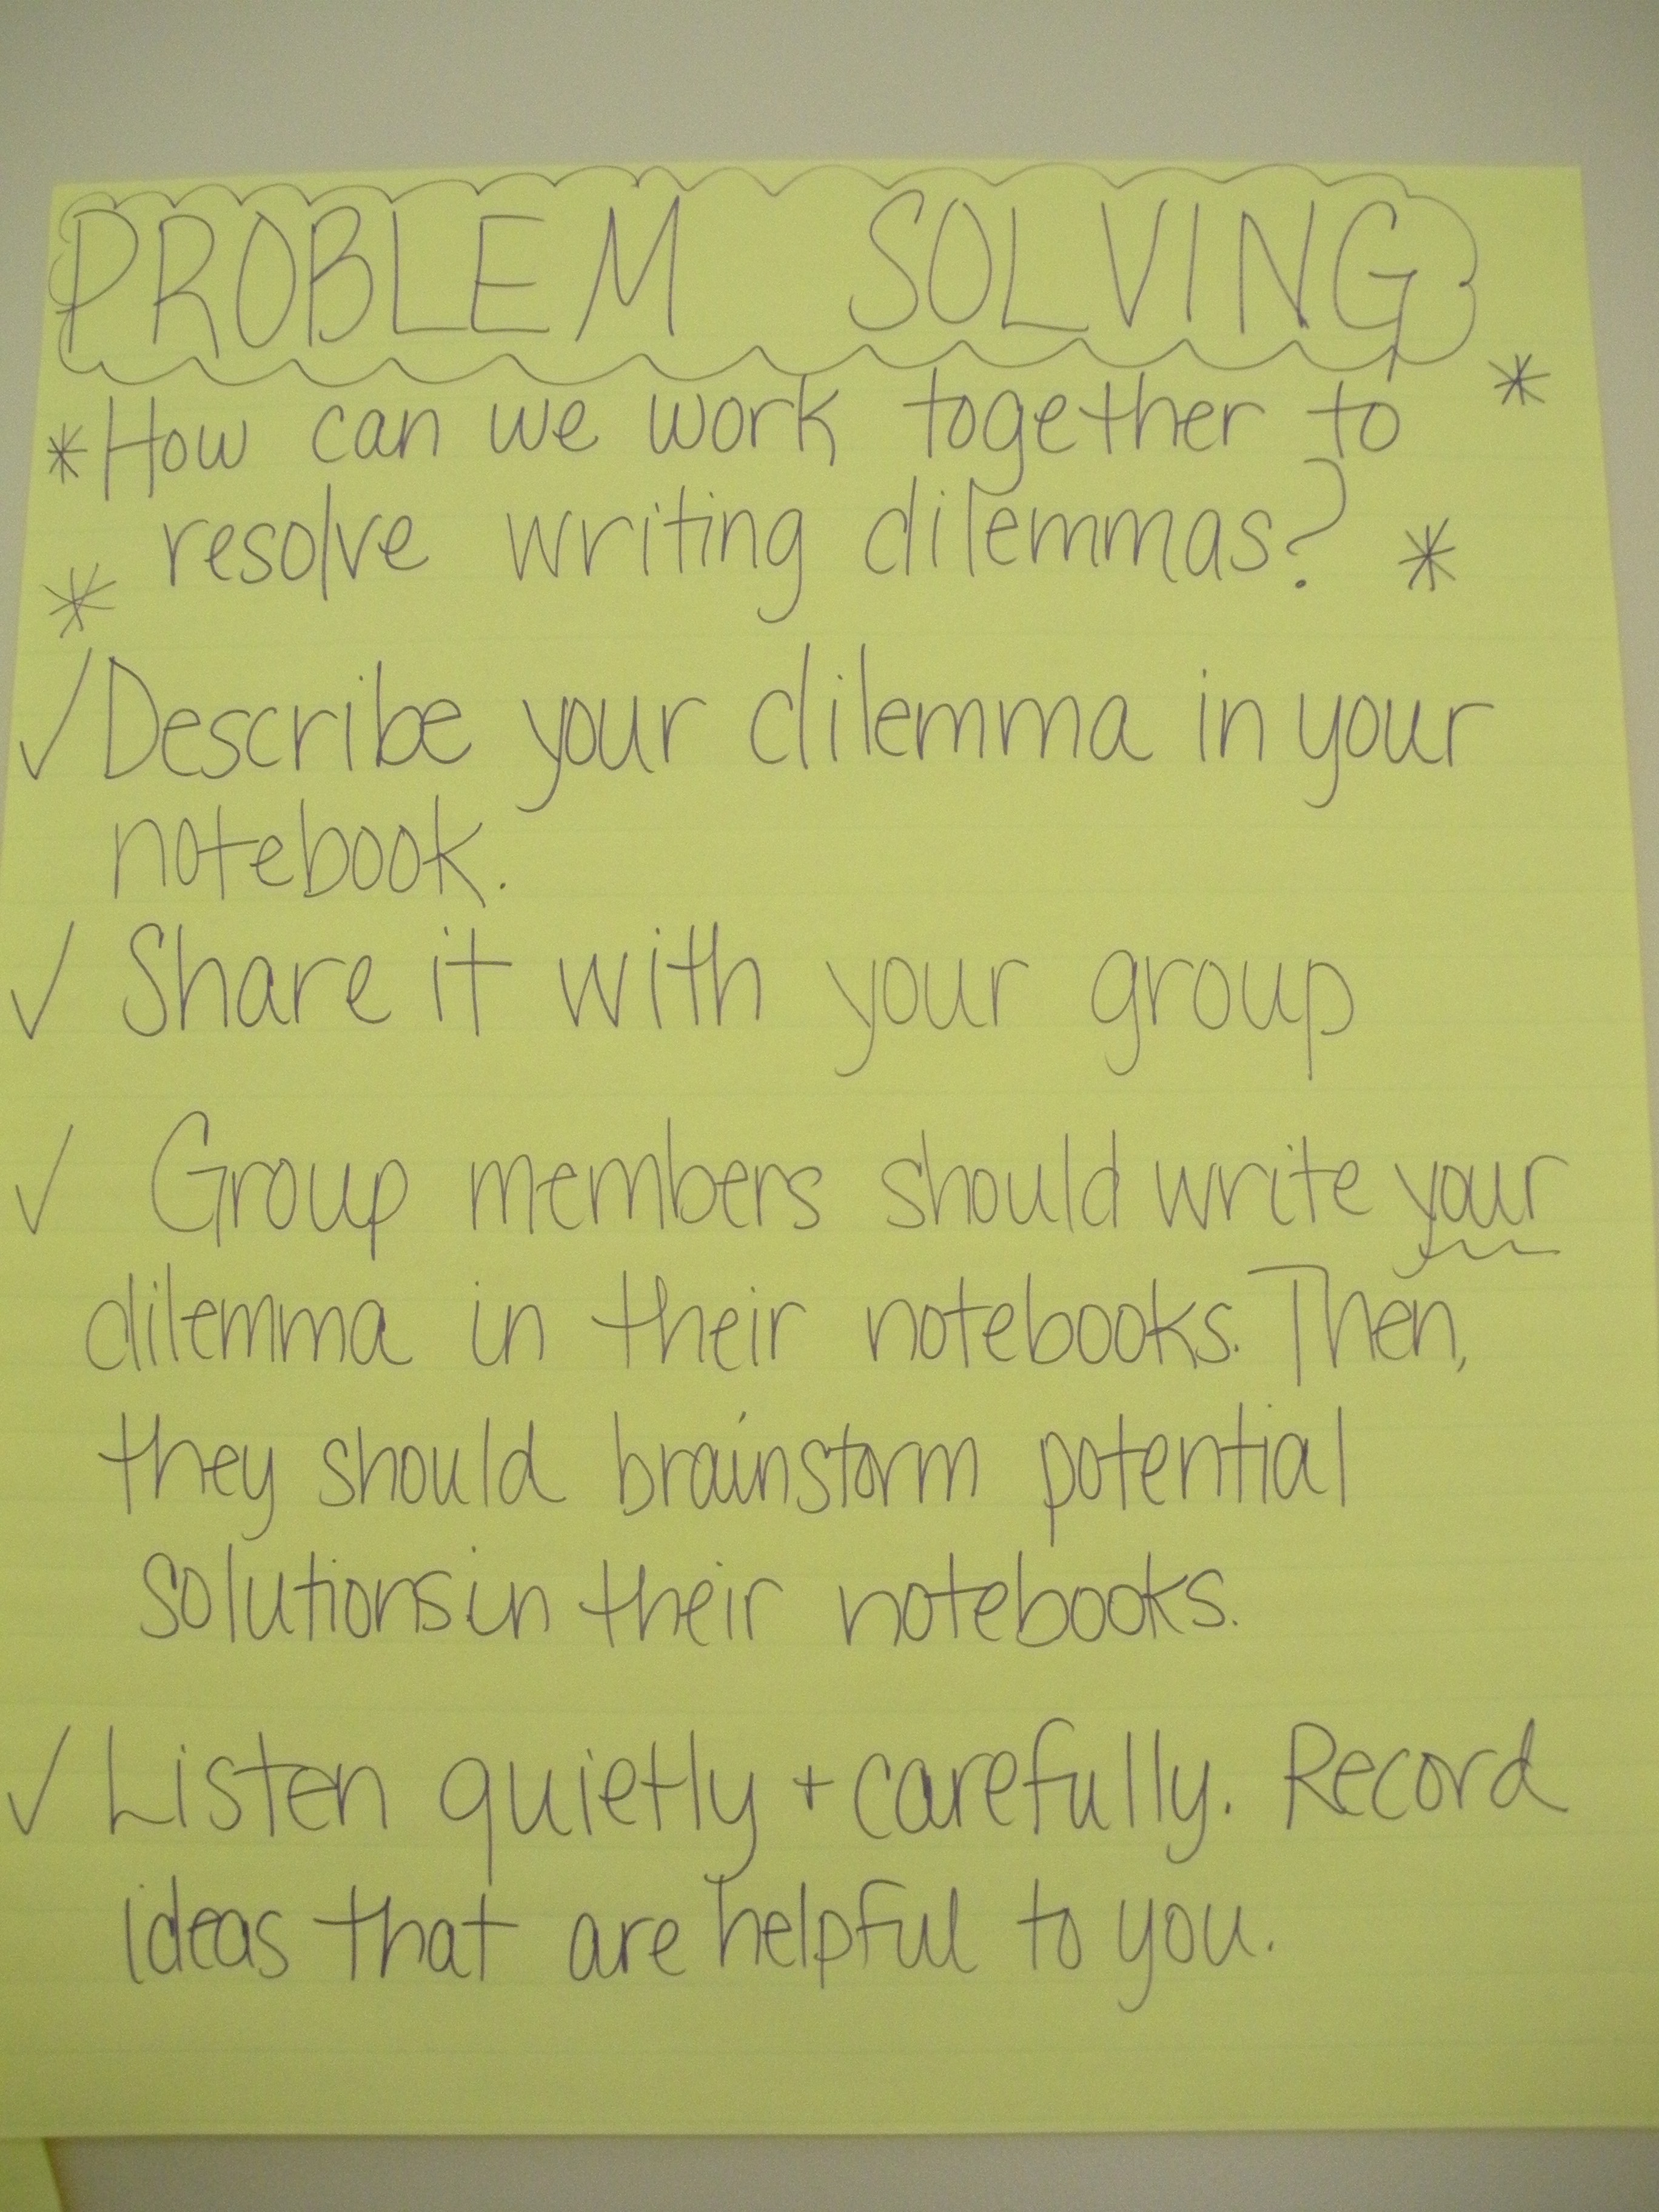 PROBLEM SOLVING
*How can we work together to *
* resolve writing dilemmas? *
✓Describe your dilemma in your
notebook.
✓ Share it with your group
✓ Group members should write your
dilemma in their notebooks. Then,
they should brainstorm potential
solutions in their notebooks.
✓ Listen quietly + carefully. Record
ideas that are helpful to you.